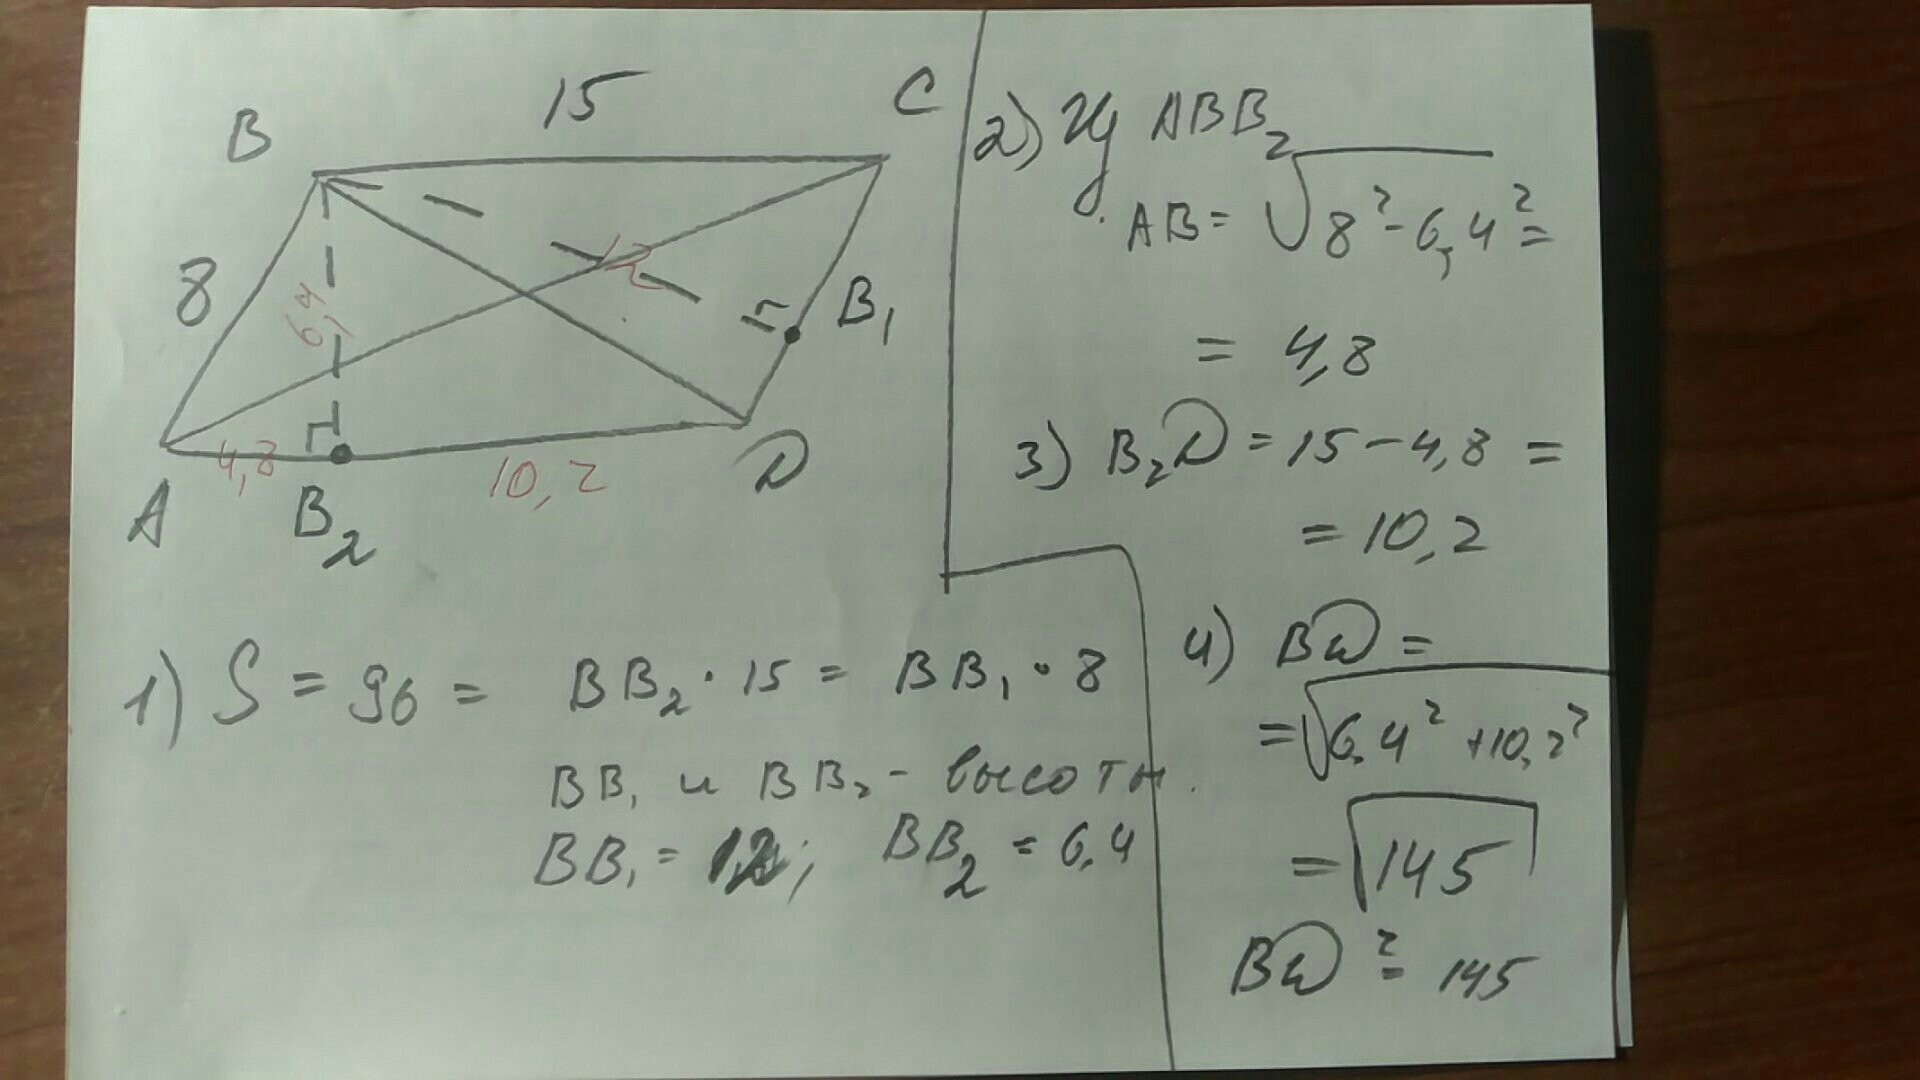 B
15
C
8
6,4
12
B₁
A
4,8
B₂
10,2
D
1) S = 96 = BB₂ · 15 = BB₁ · 8
BB₁ и BB₂ - высоты.
BB₁ = 12; BB₂ = 6.4
2) Из ABB₂
AB = √8² - 6,4² =
= 4,8
3) B₂D = 15 - 4,8 =
= 10,2
4) BD =
= √6.4² + 10,2²
= √145
BD² = 145